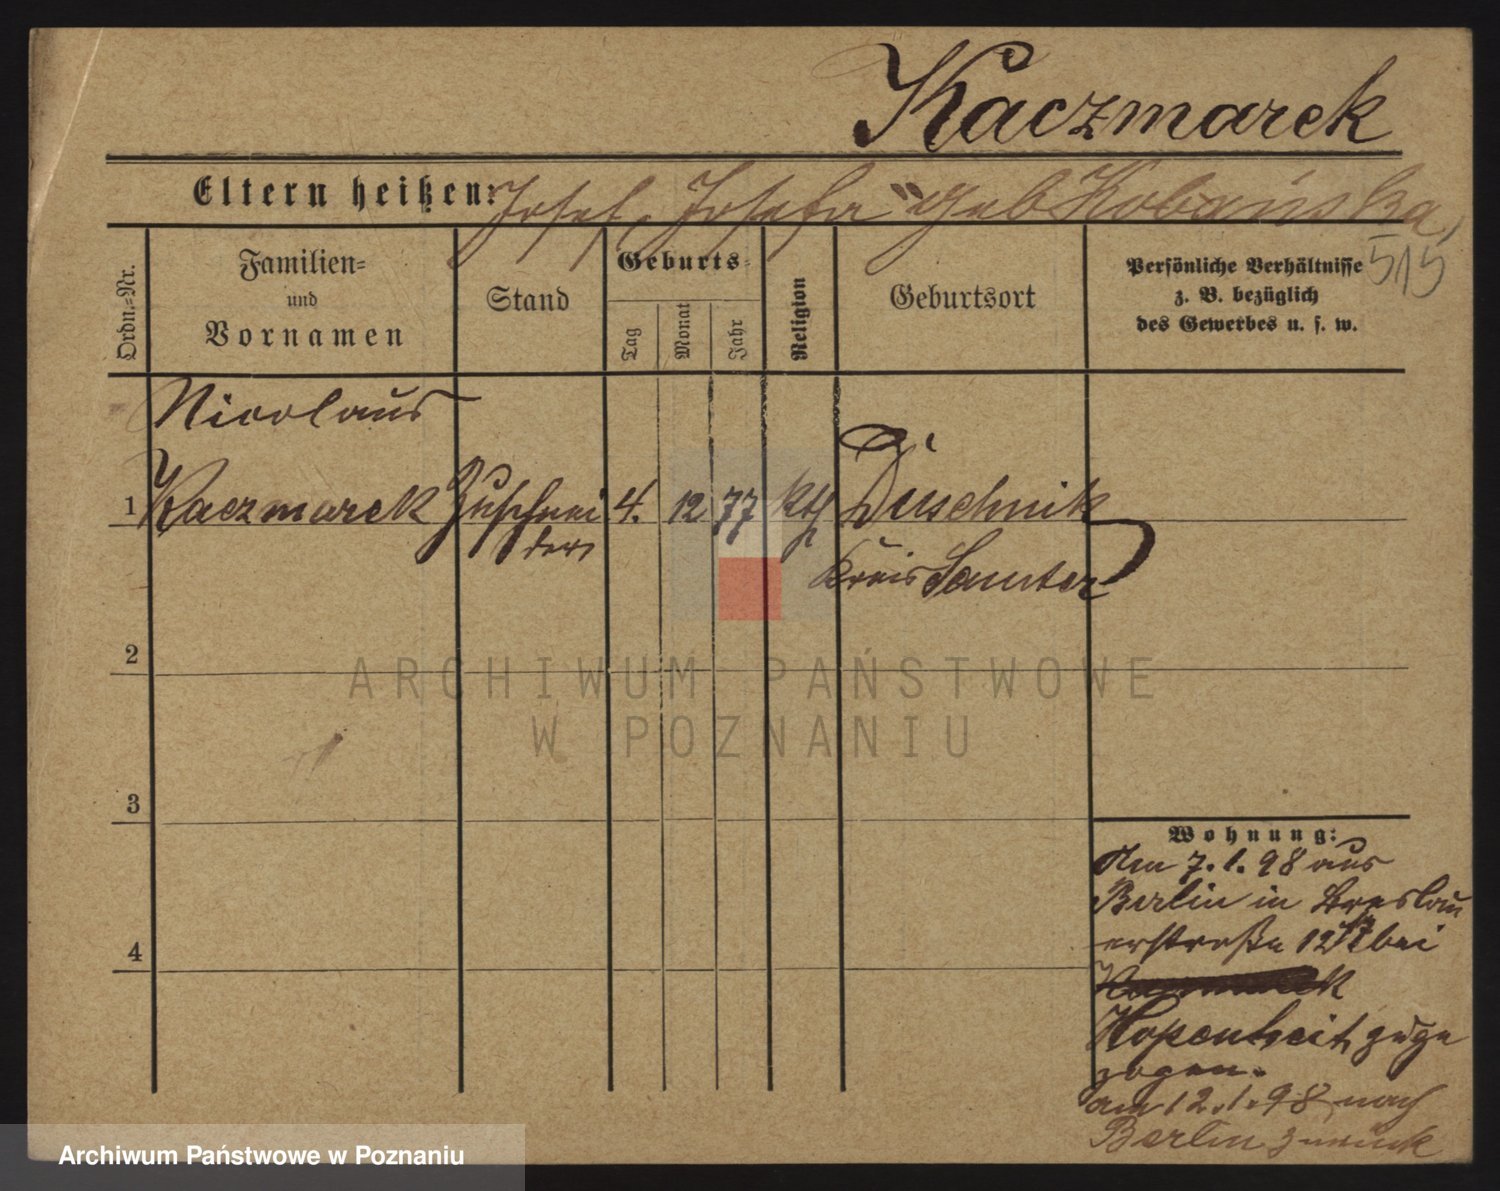 Kaczmarek
Eltern heißen: Josef, Josefa geb Kobańska,
515
Ordn.-Nr.
Familien-
und
Vornamen
Stand
Geburts-
Tag
Monat
Jahr
Religion
Geburtsort
Persönliche Verhältnisse
z. B. bezüglich
des Gewerbes u. s. w.
Nicolaus
1 Kaczmarek Zuschnei 4. 12 77 kth Duschnik
der
Kreis Samter
2
ARCHIWUM PAŃSTWOWE
W POZNANIU
3
Wohnung:
Am 7.1.98 aus
Berlin in Breslau
erstraße 12 bei
zuge
zogen.
am 12.1.98 nach
Berlin zurück
4
Archiwum Państwowe w Poznaniu